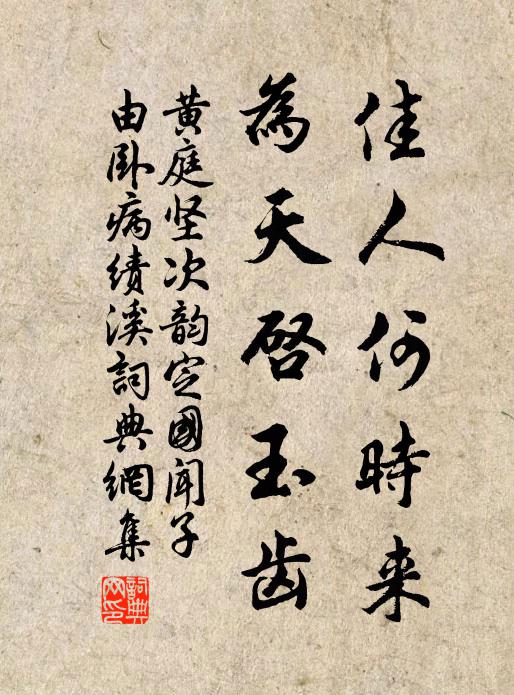 佳人何時来
為天启玉齿
黄庭坚次韵定國闻子
由卧病绩溪詞典網集
詞典
网印